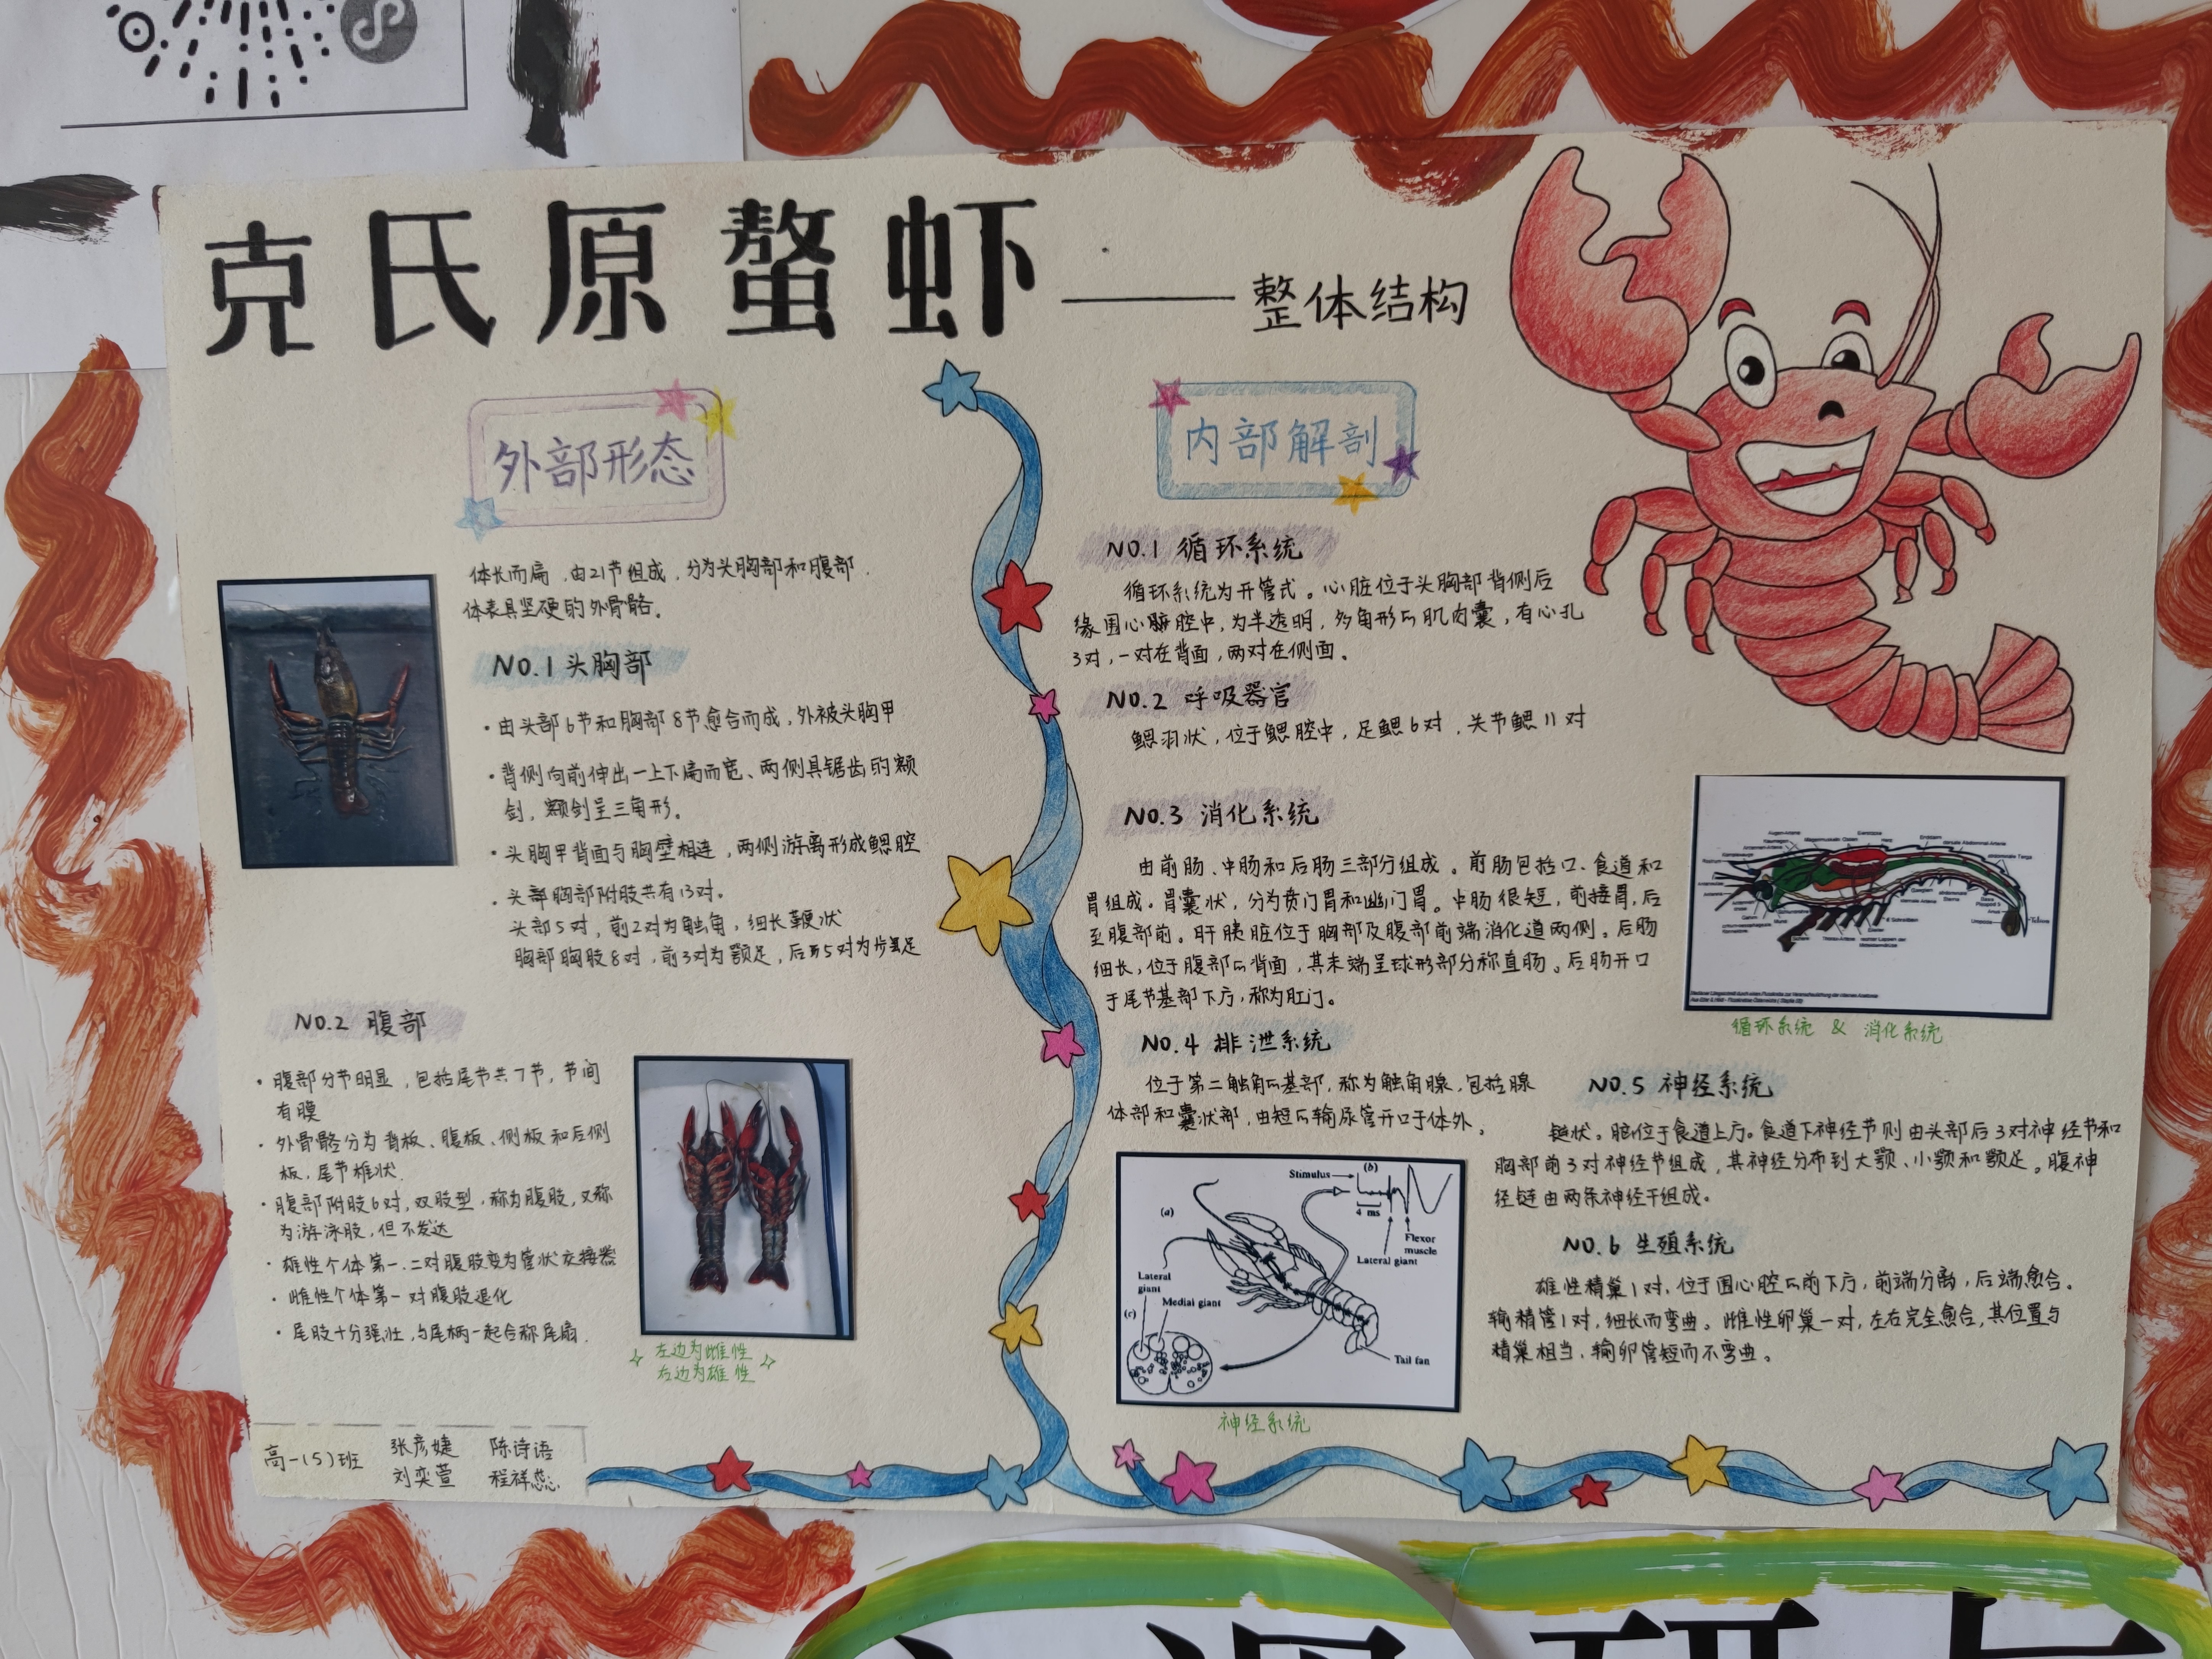 克氏原螯虾——整体结构
外部形态
体长而扁，由21节组成，分为头胸部和腹部，
体表具坚硬的外骨骼。
NO.1 头胸部
·由头部6节和胸部8节愈合而成，外被头胸甲
·背侧向前伸出一上下扁而宽、两侧具锯齿的额
剑，额剑呈三角形。
·头胸甲背面与胸壁相连，两侧游离形成鳃腔
·头部胸部附肢共有13对。
头部5对，前2对为触角，细长鞭状
胸部胸肢8对，前3对为颚足，后5对为步足
NO.2 腹部
·腹部分节明显，包括尾节共7节，节间
有膜
·外骨骼分为背板、腹板、侧板和后侧
板，尾节椎状
·腹部附肢6对，双肢型，称为腹肢，又称
为游泳肢，但不发达
·雄性个体第一、二对腹肢变为管状交接器
·雌性个体第一对腹肢退化
·尾肢十分强壮，与尾柄一起合称尾扇
左边为雌性
右边为雄性
高一(5)班 张彦婕 陈诗语
刘奕萱 程祥蕊
内部解剖
NO.1 循环系统
循环系统为开管式。心脏位于头胸部背侧后
缘围心脏腔中，为半透明，多角形的肌肉囊，有心孔
3对，一对在背面，两对在侧面。
NO.2 呼吸器官
鳃羽状，位于鳃腔中，足鳃6对，关节鳃11对
NO.3 消化系统
由前肠、中肠和后肠三部分组成。前肠包括口、食道和
胃组成。胃囊状，分为贲门胃和幽门胃。中肠很短，前接胃，后
至腹部前。肝胰脏位于胸部及腹部前端消化道两侧。后肠
细长，位于腹部的背面，其末端呈球形部分称直肠。后肠开口
于尾节基部下方，称为肛门。
循环系统 & 消化系统
NO.4 排泄系统
位于第二触角的基部，称为触角腺，包括腺
体部和囊状部，由短的输尿管开口于体外。
Stimulus
(b)
4 ms
Flexor
muscle
Lateral giant
(a)
Lateral
giant
Medial giant
(c)
Tail fan
神经系统
NO.5 神经系统
链状。脑位于食道上方。食道下神经节则由头部后3对神经节和
胸部前3对神经节组成，其神经分布到大颚、小颚和颚足。腹神
经链由两条神经干组成。
NO.6 生殖系统
雄性精巢1对，位于围心腔的前下方，前端分离，后端愈合。
输精管1对，细长而弯曲。雌性卵巢一对，左右完全愈合，其位置与
精巢相当，输卵管短而不弯曲。